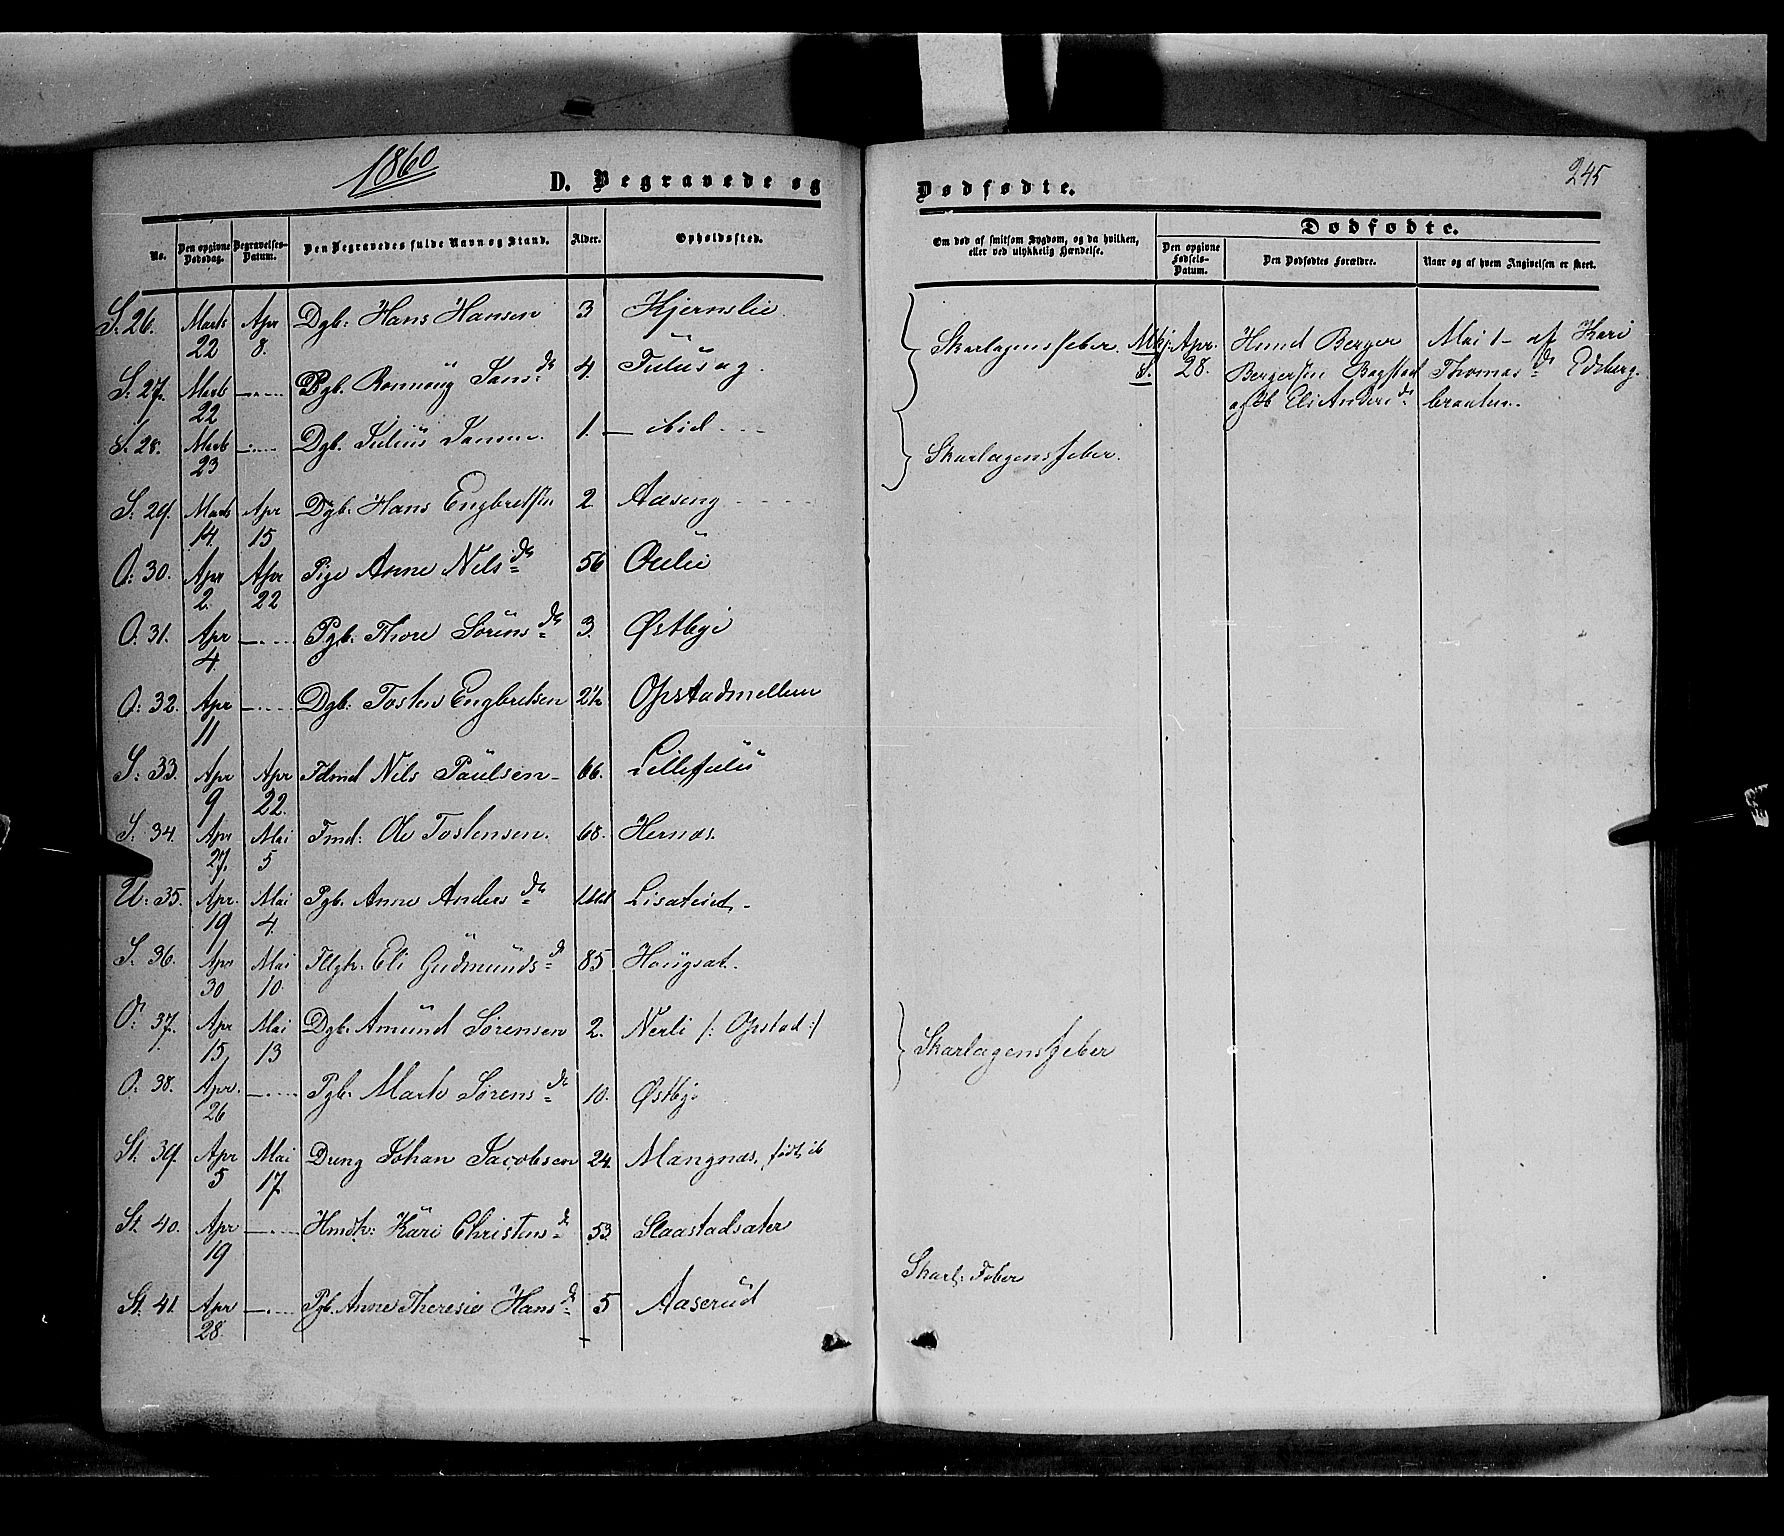 1860
245
D. Begravede og Dødfødte.
No. Den opgivne Dødsdag. Begravelses-Datum. Den Begravedes fulde Navn og Stand. Alder. Opholdssted. Om død af smitsom Sygdom, og da hvilken, eller ved ulykkelig Hændelse.
Dødfødte.
Den opgivne Fødsels-Datum. Den Dødfødtes Forældre. Naar og af hvem Angivelsen er skeet.
S. 26. Marts 22 Apr 8. Dgb: Hans Hansen 3 Kjernslie
S. 27. Marts 22 -"- Pgb. Jans d. 4.
Skarlagensfeber.
S. 28. Marts 23 -"- Dgb. Julius Jansen. 1. — ibid —
Skarlagensfeber.
S. 29. Marts 14. Apr 15 Dgb: Hans Engbretsen 2 Aaseng
O: 30. Apr 2. Apr 22 Pige Anne Nilsd. 56
O. 31. Apr 4. -"- Pgb: Thore Sørensd. 3. Østbye
O: 32. Apr 11 -"- Dgb: Tosten Engbretsen 2½ Opstadmellem
S: 33. Apr 9 Apr 22. Fdmd Nils Paulsen 66.
S. 34. Apr 27. Mai 5 Fmd: Ole Tostensen. 68. Hernæs.
U: 35. Apr. 19 Mai 4. Pgb. Anne Andersd.
S. 36. Apr 30 Mai 10. Eli Gudmundsd. 85
O: 37. Apr 15, Mai 13 Dgb. Amund Sørensen 2. Nerli /: Opstad :/
O: 38. Apr. 26 -"- Pgb. Marte Sørensd. 10. Østby
Skarlagensfeber
St. 39. Apr 5 Mai 17. Dreng Johan Jacobsen 24. Mangnæs, født ib
St. 40. Apr 19 -"- Kari Christensd. 53. Slaastadsæter
St. 41. Apr 28. -"- Pgb. Anne Theresie Hansd. 5 Aaserud
Skarl: Feber
Apr. 28. Berger
Mai 1 - af Kari
Bergersen Bagstad
Thomasd. Edsberg
Eli Andersd.
braaten.